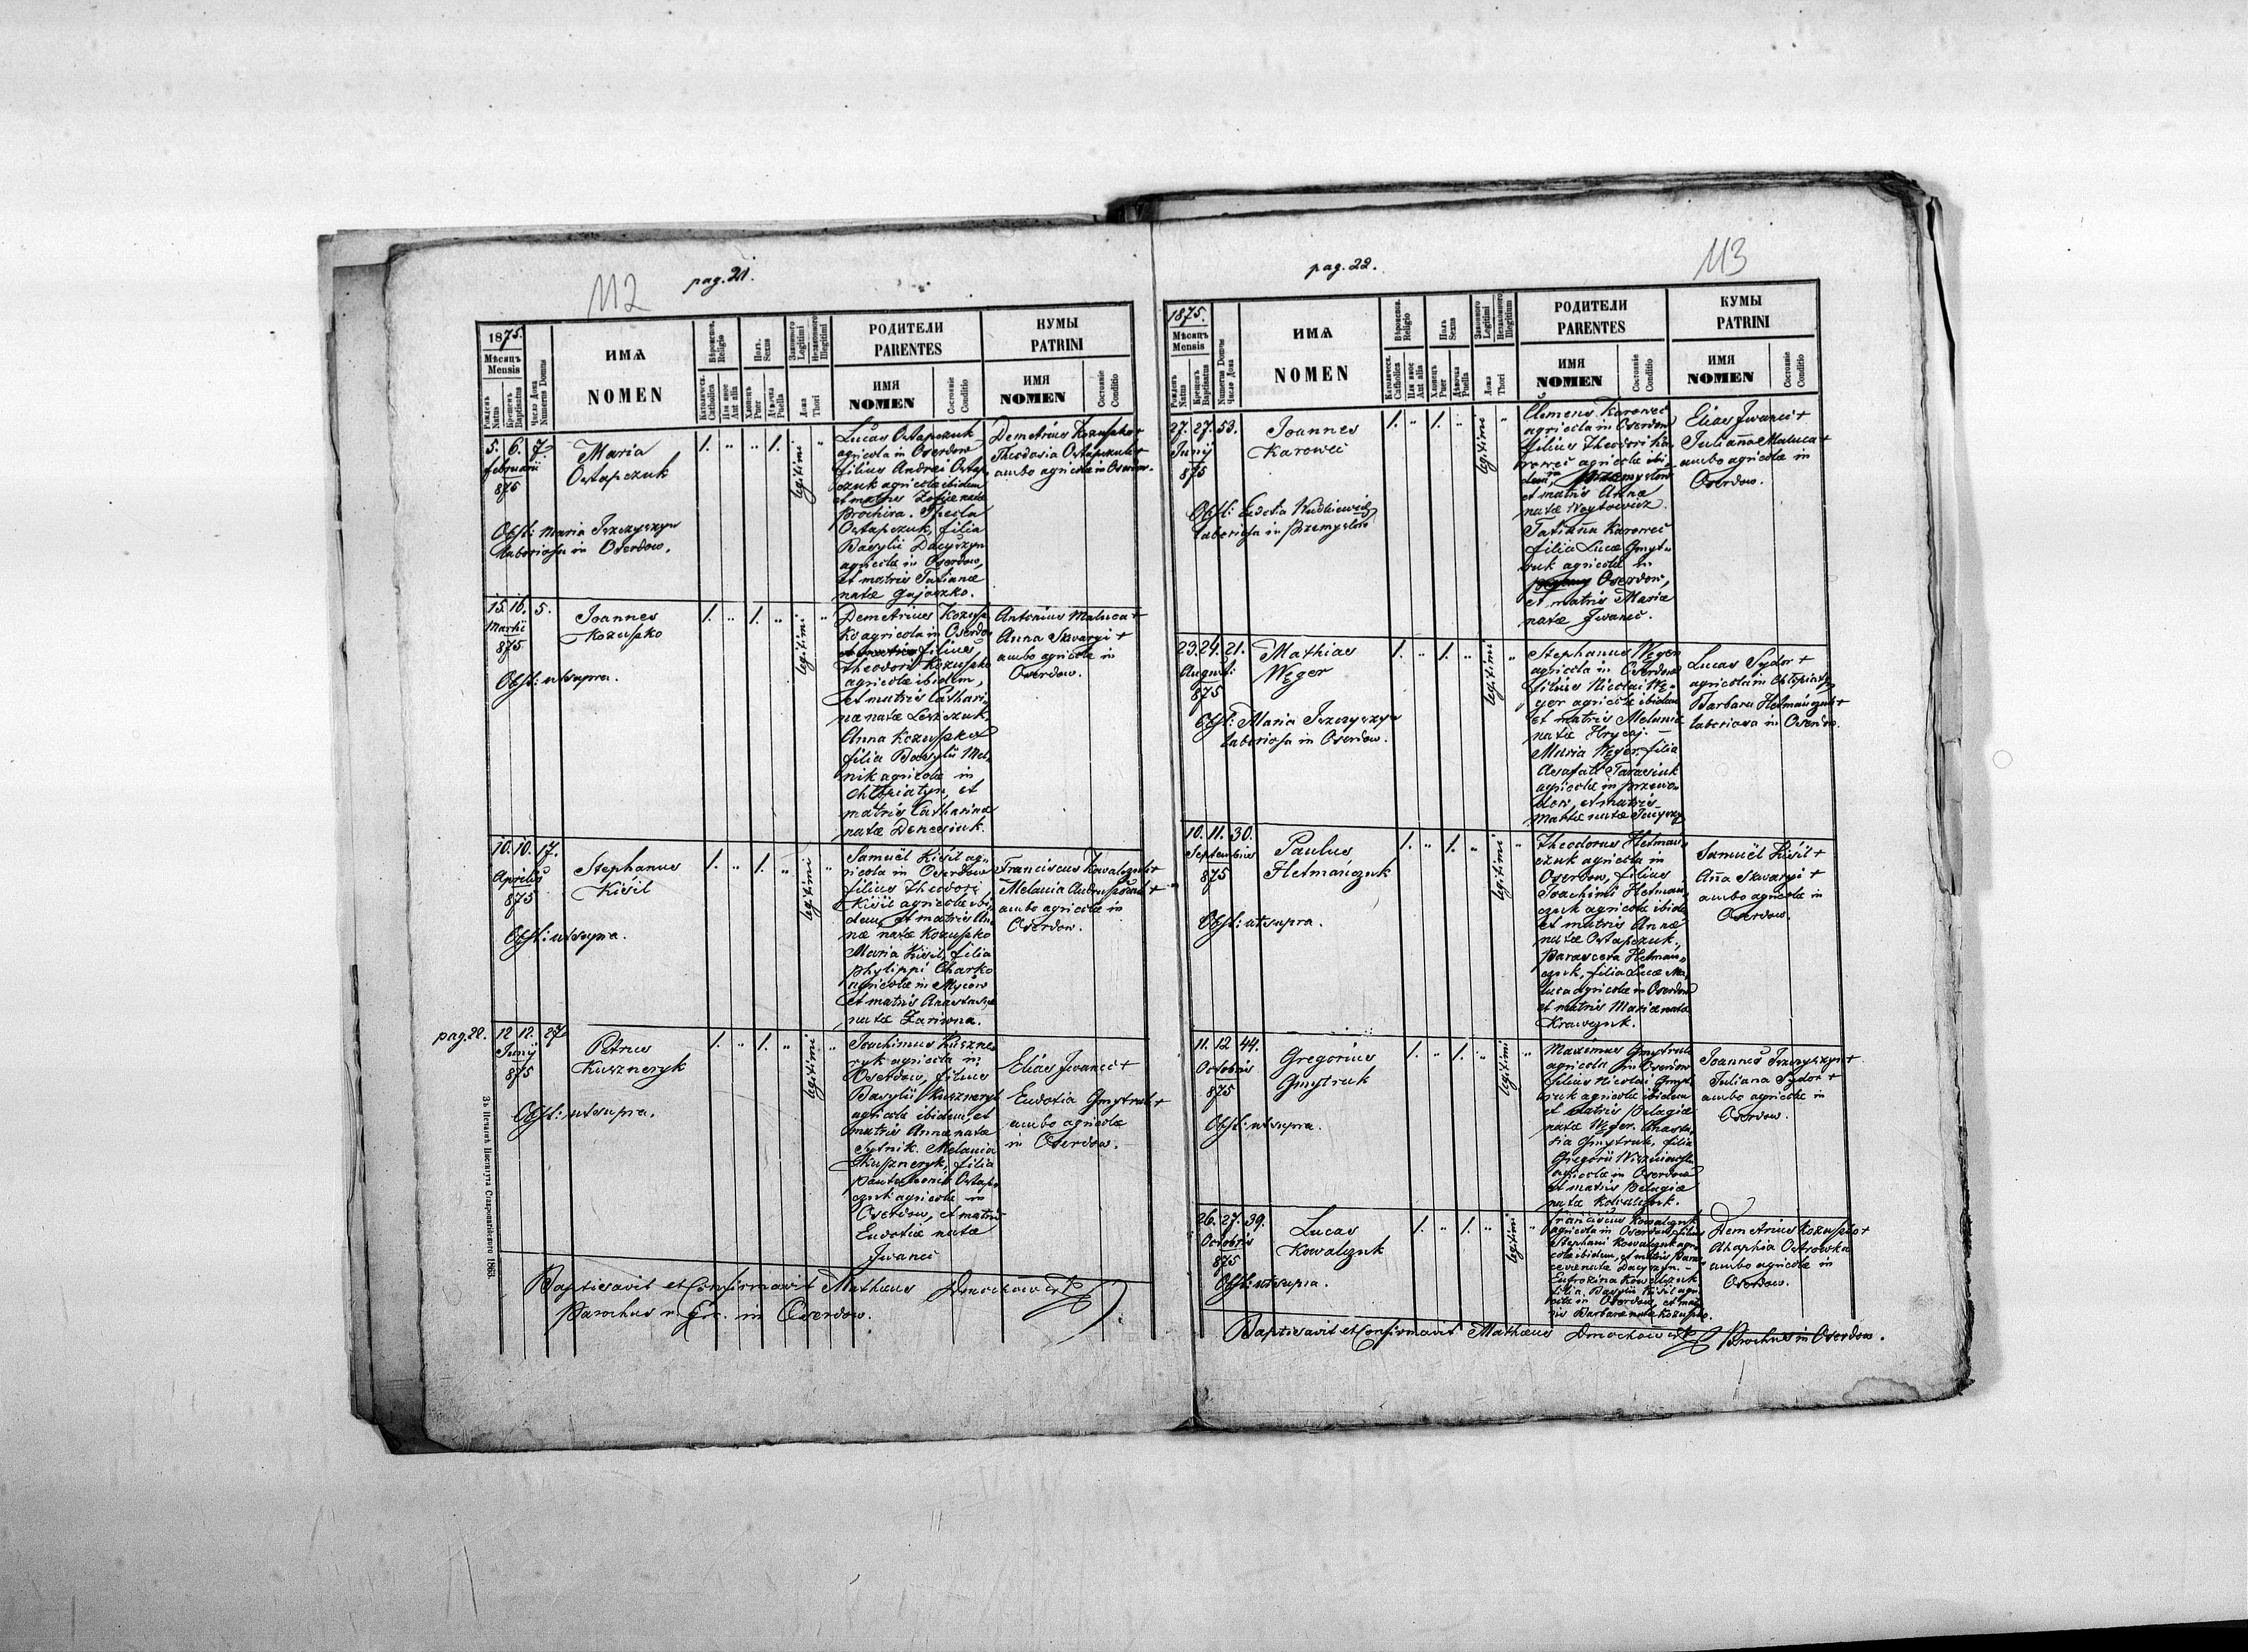 112
pag. 21.
1875.
Мѣсяцъ
Mensis
Рожденъ
Natus
Крещенъ
Baptisatus
Число Дома
Numerus Domus
ИМѦ
NOMEN
Вѣроиспов.
Religio
Католическ.
Catholica
Или иное
Aut alia
Полъ.
Sexus
Хлопецъ
Puer
Дѣвочка
Puella
Законного
Legitimi
Незаконного
Illegitimi
Ложа
Thori
РОДИТЕЛИ
PARENTES
ИМЯ
NOMEN
Состояніе
Conditio
КУМЫ
PATRINI
ИМЯ
NOMEN
Состояніе
Conditio
5. 6. 7
februarii
875
Maria
Ostapczuk
1. " " 1. legitimi "
Obst: Maria Iszczyszyn
laboriosa in Oserdow.
Lucas Ostapczuk
agricola in Oserdow
filius Andrei Ostap
czuk agricolæ ibidem
et matris Zofiæ natæ
Prochira. Thecla
Ostapczuk, filia
Basylii Dacyszyn
agricolæ in Oserdow,
et matris Tatianæ
natæ Gujaszko.
Demetrius Kozuszko +
Theodosia Ostapczuk +
ambo agricolæ in Oserdow.
15. 16. 5.
Martii
875
Joannes
Kozuszko
1. " 1. " legitimi "
Obst: ut supra.
Demetrius Kozusz
ko agricola in Oserdo
filius
Theodori Kozuszko
agricolæ ibidem,
et matris Cathari
næ natæ Leszczuk.
Anna Kozuszko
filia Basylii Mel
nik agricolæ in
Chłopiatyn, et
matris Catharinæ
natæ Denesiuk.
Antonius Maluca +
Anna Skwargi +
ambo agricolæ in
Oserdow.
10. 10. 17.
Aprilis
875
Stephanus
Kiśil
1. " 1. " legitimi "
Obst: ut supra.
Samuël Kiśil ag
ricola in Oserdow
filius Theodori
Kiśil agricolæ ibi
dem, et matris An
næ natæ Kozuszko
Maria Kiśil, filia
Phylippi Charko
agricolæ in Myców
et matris Anastasiæ
natæ Zariwna.
Franciscus Kowalczuk +
Melania +
ambo agricolæ in
Oserdow.
pag. 22.
12. 12. 27
Junij
875
Petrus
Kuszneryk
1. " 1. " legitimi "
Obst: ut supra.
Joachimus Kuszne
ryk agricola in
Oserdow, filius
Basylii Kuszneryk
agricolæ ibidem, et
matris Annæ natæ
Sytnik. Melania
Kuszneryk, filia
Panteleonis Ostap
czuk agricolæ in
Oserdow, et matris
Eudotiæ natæ
Jwanec
Elias Jwanec +
Eudotia Gmytruk +
ambo agricolæ
in Oserdow.
Baptisavit et Confirmavit Mathæus Dmochowski
Parochus r. gr. in Oserdow.
Зъ Печатнѣ Института Ставропигіеского 1863.
113
pag. 22.
1875.
Мѣсяцъ
Mensis
Рожденъ
Natus
Крещенъ
Baptisatus
Numerus Domus
Число Дома
ИМѦ
NOMEN
Вѣроиспов.
Religio
Католическ.
Catholica
Или иное
Aut alia
Полъ
Sexus
Хлопецъ
Puer
Дѣвочка
Puella
Законного
Legitimi
Незаконного
Illegitimi
Ложа
Thori
РОДИТЕЛИ
PARENTES
ИМЯ
NOMEN
Состояніе
Conditio
КУМЫ
PATRINI
ИМЯ
NOMEN
Состояніе
Conditio
27. 27. 53.
Junij
875
Joannes
Karoweć
1. " 1. " legitimi "
Obst: Eudotia Kudkiewicz
laboriosa in Przemysłow
Clemens Karoweć
agricola in Oserdow
filius Theodori Ka
roweć agricolæ ibi
dem, Przemysłow
et matris Annæ
natæ Woytowicz.
Tatiãna Karoweć
filia Lucæ Gmyt
ruk agricolæ in
Oserdow,
et matris Mariæ
natæ Jwaneć.
Elias Jwanec +
Juliañna Maluca +
ambo agricolæ in
Oserdow.
23. 24. 21.
August:
875
Mathias
Węger
1. " 1. " legitimi "
Obst: Maria Iszczyszyn
laboriosa in Oserdow.
Stephanus Węger
agricola in Oserdow
filius Nicolai Wę
ger agricolæ ibidem
et matris Melaniæ
natæ Hrycaj. –
Maria Węger, filia
Asafati Tarasiuk
agricolæ in Przewo
dow, et matris
Marthæ natæ
Lucas Sydor +
agricola in Chłopiatyn
Barbara Hetmańczuk +
laboriosa in Oserdow.
10. 11. 30.
Septembris
875
Paulus
Hetmańczuk
1. " 1. " legitimi "
Obst: ut supra.
Theodorus Hetmań
czuk agricola in
Oserdow, filius
Joachimi Hetmań
czuk agricolæ ibidem
et matris Annæ
natæ Ostapczuk,
Parasceva Hetmań
czuk, filia Lucæ Ma
luca agricolæ in Oserdow
et matris Mariæ natæ
Krawczuk.
Samuël Kiśil +
Aña Skwargi +
ambo agricolæ in
Oserdow.
11. 12. 44.
Octobris
875
Gregorius
Gmytruk
1. " 1. " legitimi "
Obst: ut supra.
Maximus Gmytruk
agricola in Oserdow
filius Nicolai Gmyt
ruk agricolæ ibidem
et matris Pelagiæ
natæ Węger. Anasta
sia Gmytruk, filia
Gregorii Wiszniowski
agricolæ in Oserdow
et matris Pelagiæ
natæ Kowalczuk.
Joannes Iszczyszyn +
Juliana Sydor +
ambo agricolæ in
Oserdow.
26. 27. 39.
Octobris
875
Lucas
Kowalczuk
1. " 1. " legitimi "
Obst: ut supra.
Franciscus Kowalczuk
agricola in Oserdow, filius
Stephani Kowalczuk agri
colæ ibidem, et matris Paras
cevæ natæ Dacyszyn. –
Eufrozina Kowalczuk
filia Basylii Kiśil agri
colæ in Oserdow, et mat
ris Barbaræ natæ Kozuszko.
Demetrius Kozuszko +
Ahaphia Ostrowka
ambo agricolæ in
Oserdow.
Baptisavit et Confirmavit Mathæus Dmochowski Parochus in Oserdow.